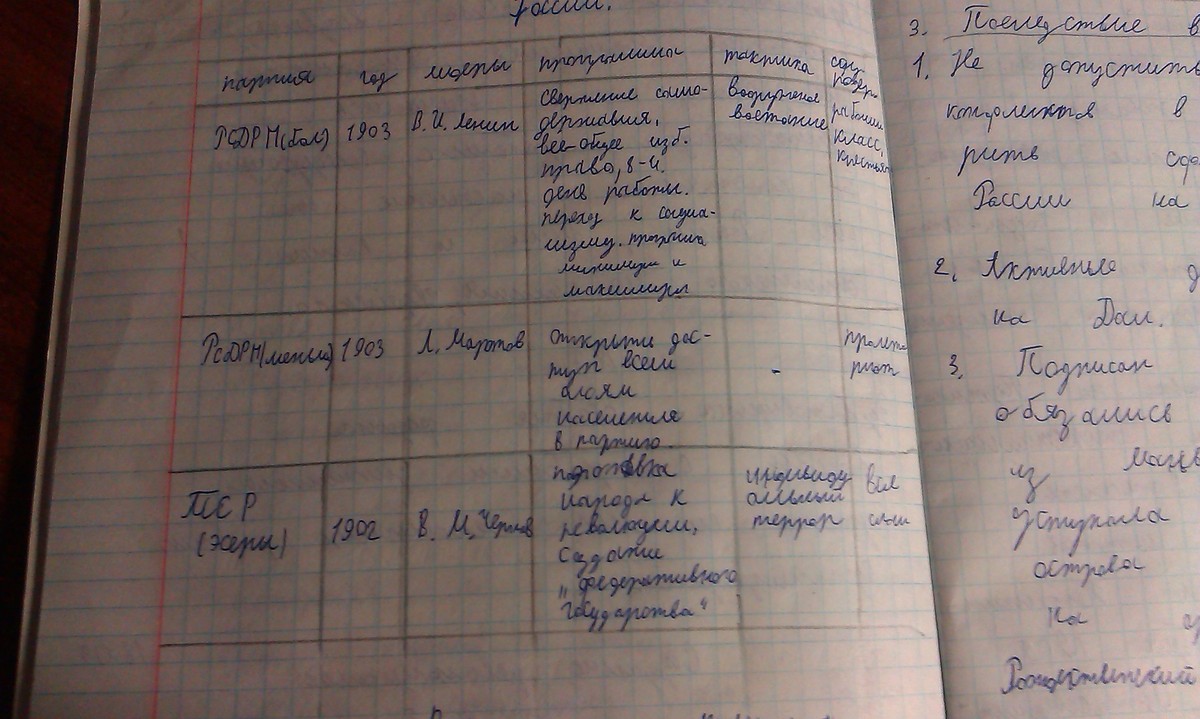 России.
партия год лидеры программы тактика соц.
РСДРП(бол) 1903 В. И. Ленин
свержение само-
державия,
все-общее изб.
право, 8-и.
день работы.
переход к социа-
лизму. программа
минимум и
максимум
вооруженное
восстание
рабочий
класс,
крестьян
РСДРП(меньш) 1903 Л. Мартов
открыти дос-
туп всем
слоям
населения
в партию.
-
пролета
риат
ПСР
(эсеры)
1902 В. М. Чернов
подготовка
народа к
революции,
создание
"федеративного
государства"
индивиду
альный
террор
все
слои
3. Последствие в
1. Не допустить
конфликтов в
рить сда
России на
2. Активные д
на Дал.
3. Подписан
обязались
из Мань
уступала
острова
на
Рождественский